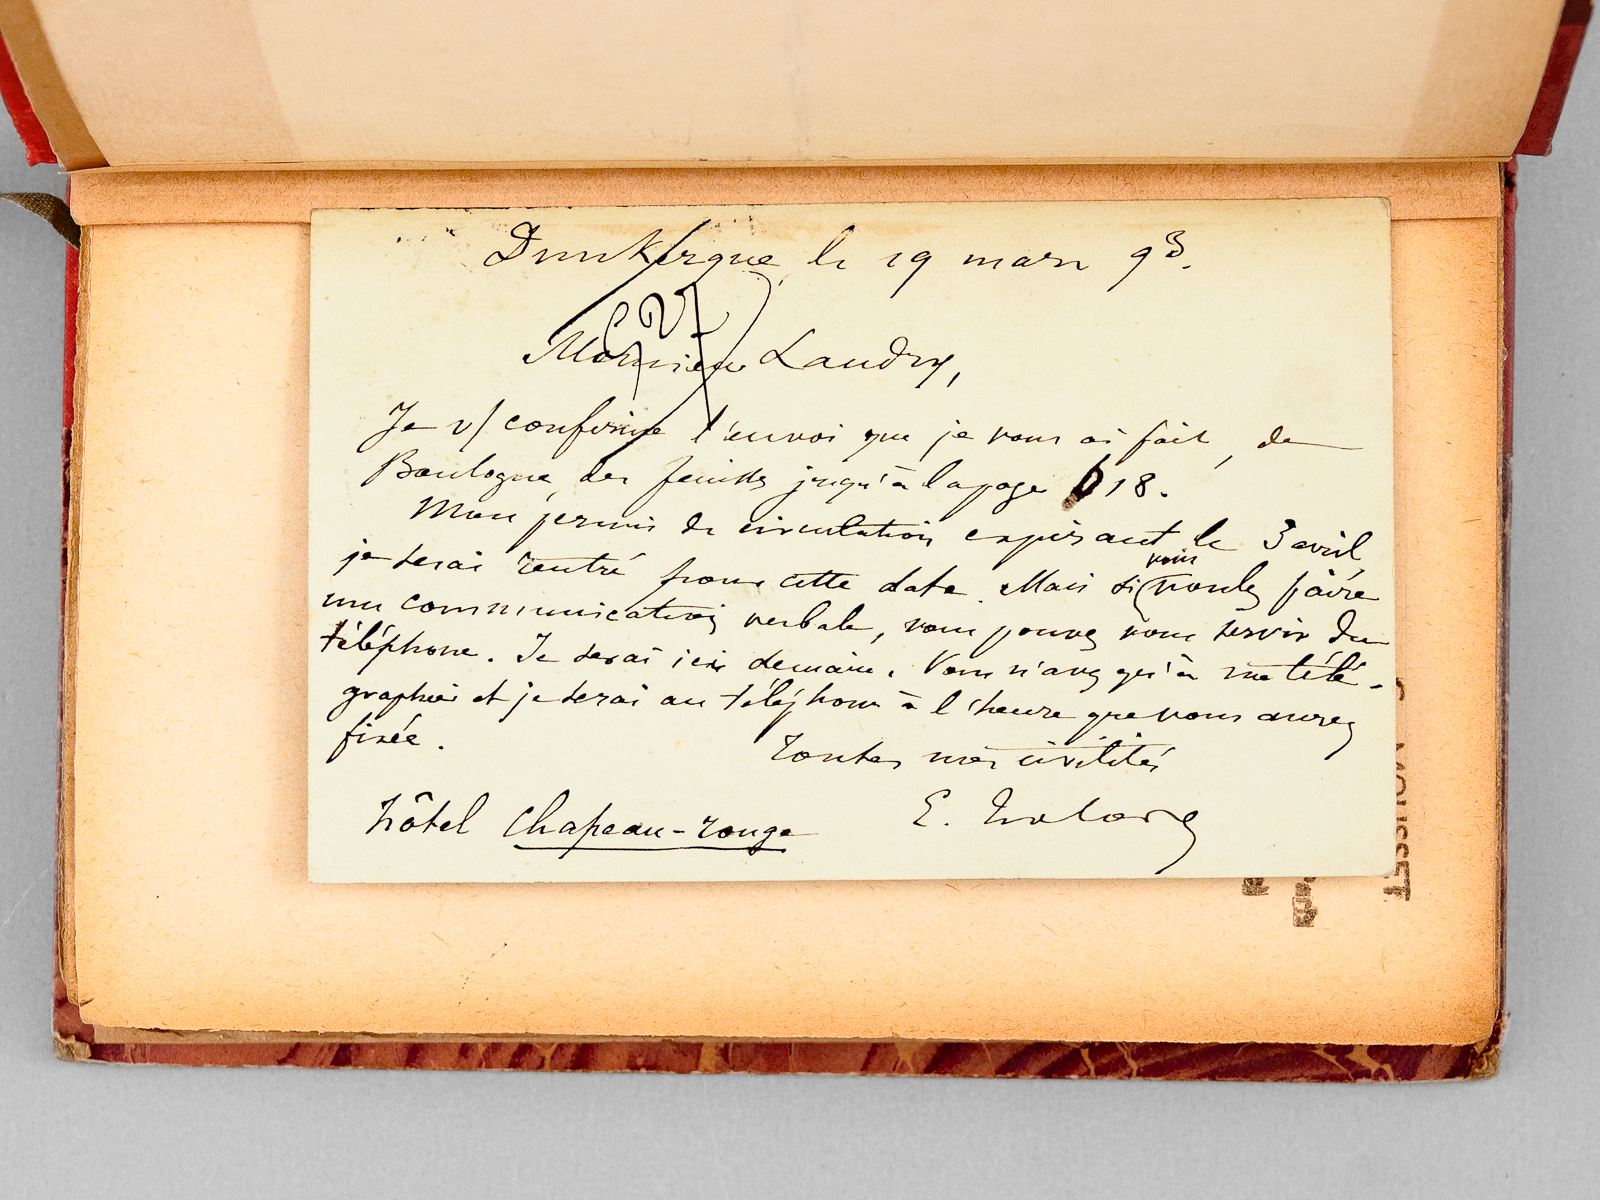 Dunkerque, le 19 mars 93.
Monsieur Landry,
Je v/ confirme l'envoi que je vous ai fait, de
Boulogne, des feuilles jusqu'à la page 18.
Mon permis de circulation expirant le 3 avril,
je serai rentré pour cette date. Mais si vous voulez faire
une communication verbale, vous pouvez vous servir du
téléphone. Je serai ici demain. Vous n'avez qu'à me télé-
graphier et je serai au téléphone à l'heure que vous aurez
fixée.
Toutes mes civilités
E.
hôtel Chapeau-rouge